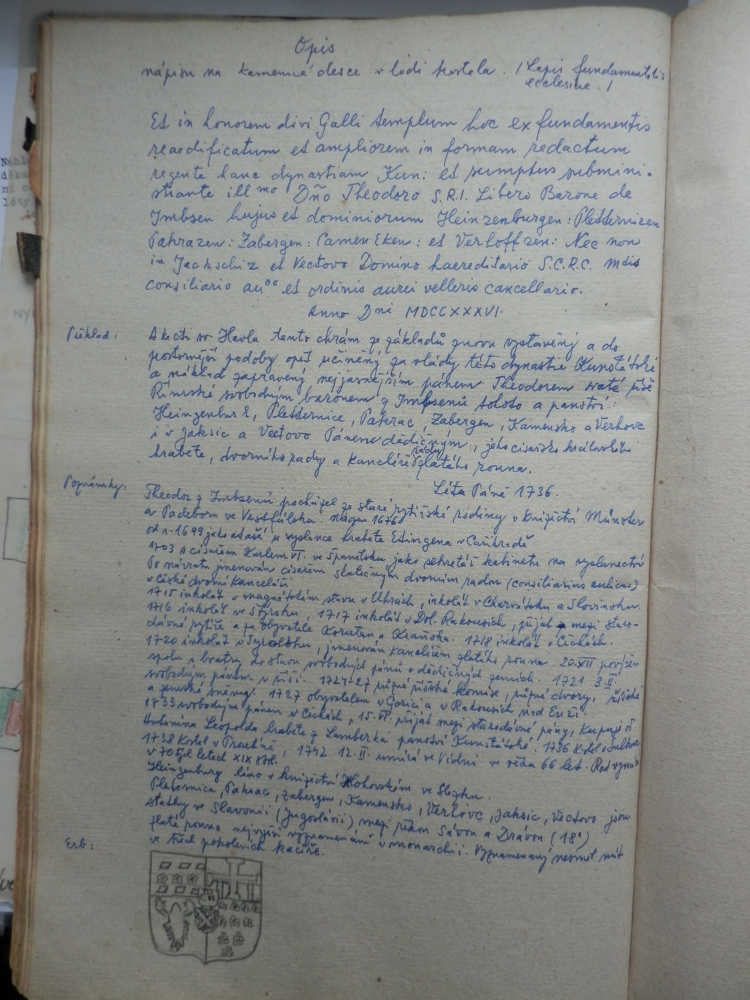 Opis
nápisu na kamenné desce v lodi kostela. (Lapis fundamentalis
ecclesiae.)
Et in honorem divi Galli templum hoc ex fundamentis
reaedificatum et ampliorem in formam redactum
regente hanc dynastiam Kun: et sumptus submini-
strante ill mo Dño Theodoro S.R.I. Libero Barone de
Imbsen hujus et dominiorum Heinzenburgen: Pletternizen
Pakrazen: Zabergen: Camen Eken: et Verloffzen: Nec non
in Jackschiz et Vectovo Domino haereditario S.C.R.C. Mtis
consiliario au co et ordinis aurei velleris cancellario.
Anno Dni MDCCXXXVI.
Překlad:
A ke cti sv. Havla tento chrám ze základů znovu vystavěný a do
prostornější podoby opět učiněný za vlády této dynastie Kunštátské
a náklad zapravený nejjasnějším pánem Theodorem svaté říše
Římské svobodným baronem z Imbsenu tohoto a panství:
Heinzenburg, Pletternice, Pakrac, Zabergen, Kamensko a Verhovc
i v Jaksic a Vectovo Pánem dědičným, jeho císarsko královského
hraběte, dvorního rady a kancléře řádu zlatého rouna.
Léta Páně 1736.
Poznámky:
Theodor z Imbsenu pocházel ze staré rytířské rodiny v knížectví Münster
a Paderborn ve Vestfálsku.
od r. 1699 jako u vyslance hraběte
1703 s císařem Karlem VI. ve Španělsku jako sekretář kabinetu na vyslanectví
Po návratu jmenován císařem skutečným dvorním radou (consiliarius aulicus)
v české dvorní kanceláři
1715 inkolát v magnátském stavu v Uhrách, inkolát v Charvátsku a Slovinsku.
1716 inkolát ve Štyrsku, 1717 inkolát v Dol. Rakousích, přijat mezi staro-
dávné rytíře a za obyvatele Korutan a Kraňska. 1718 inkolát v Čechách.
1720 inkolát v Tyrolsku, jmenován kancléřem zlatého rouna. 20.XII povýšen
spolu s bratry do stavu svobodných pánů v dědičných zemích. 1721 3.II.
svobodným pánem v říši. 1724-27 různé říšské komise, různé dvory,
a zemské sněmy. 1727 obyvatelem v Gorici a v Rakousích nad Enží.
1733 svobodným pánem v Čechách, 15.VI. přijat mezi starodávné pány, kupuje od
Antonína Leopolda hraběte z Lamberka panství Kunštátské. 1736
1738 v 1742 12.II. umírá ve Vídni ve věku 66 let. Rod vymírá
v 70tých letech XIX stol.
Heinzenburg léno v knížectví Hlohovském ve Slezsku.
Pleternica, Pakrac, Zabergen, Kamensko, Verlovc, Jaksic, Vectovo jsou
statky ve Slavonii (Jugoslávii) mezi řekou Sávou a Drávou (18°)
Zlaté rouno nejvyšší vyznamenání v monarchii. Vyznamenaný nesměl mít
ve třech pokoleních kacíře.
Erb: